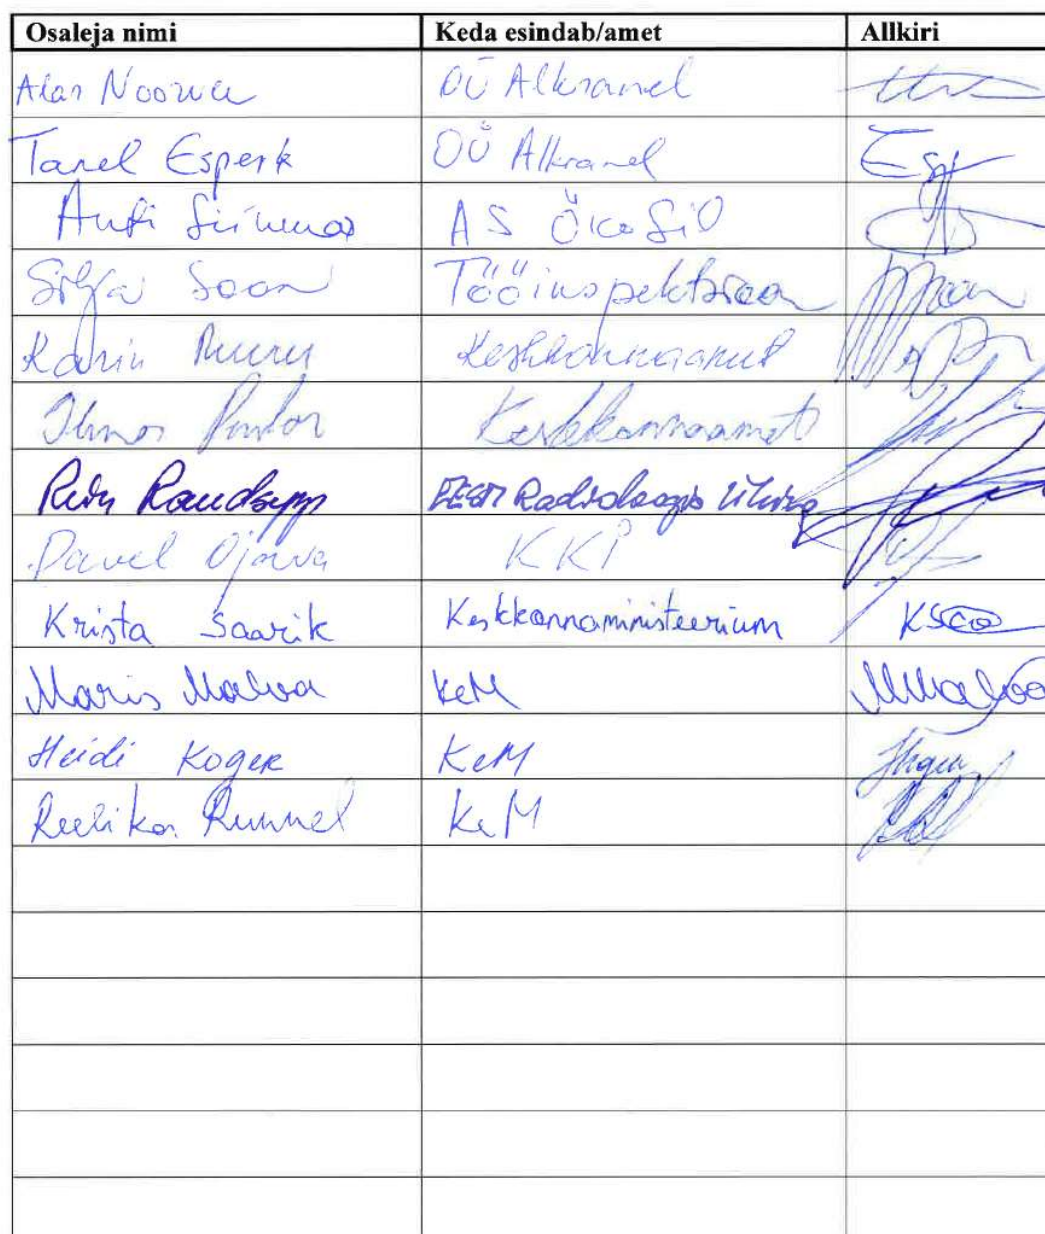 Osaleja nimi Keda esindab/amet Allkiri
Alar Noorvee OÜ Alkranel
Tanel Esperk OÜ Alkranel
Anti Siinmaa AS ÖkoSil
Silja Soon Tööinspektsioon
Karin Muuru Keskkonnaamet
Ilmar Puskar Keskkonnaamet
Raudsepp Eesti Radioloogia Ühing
Pavel Ojava KKI
Krista Saarik Keskkonnaministeerium
Maris Malva KeM
Heidi Koger KeM
Reelika Runnel KeM